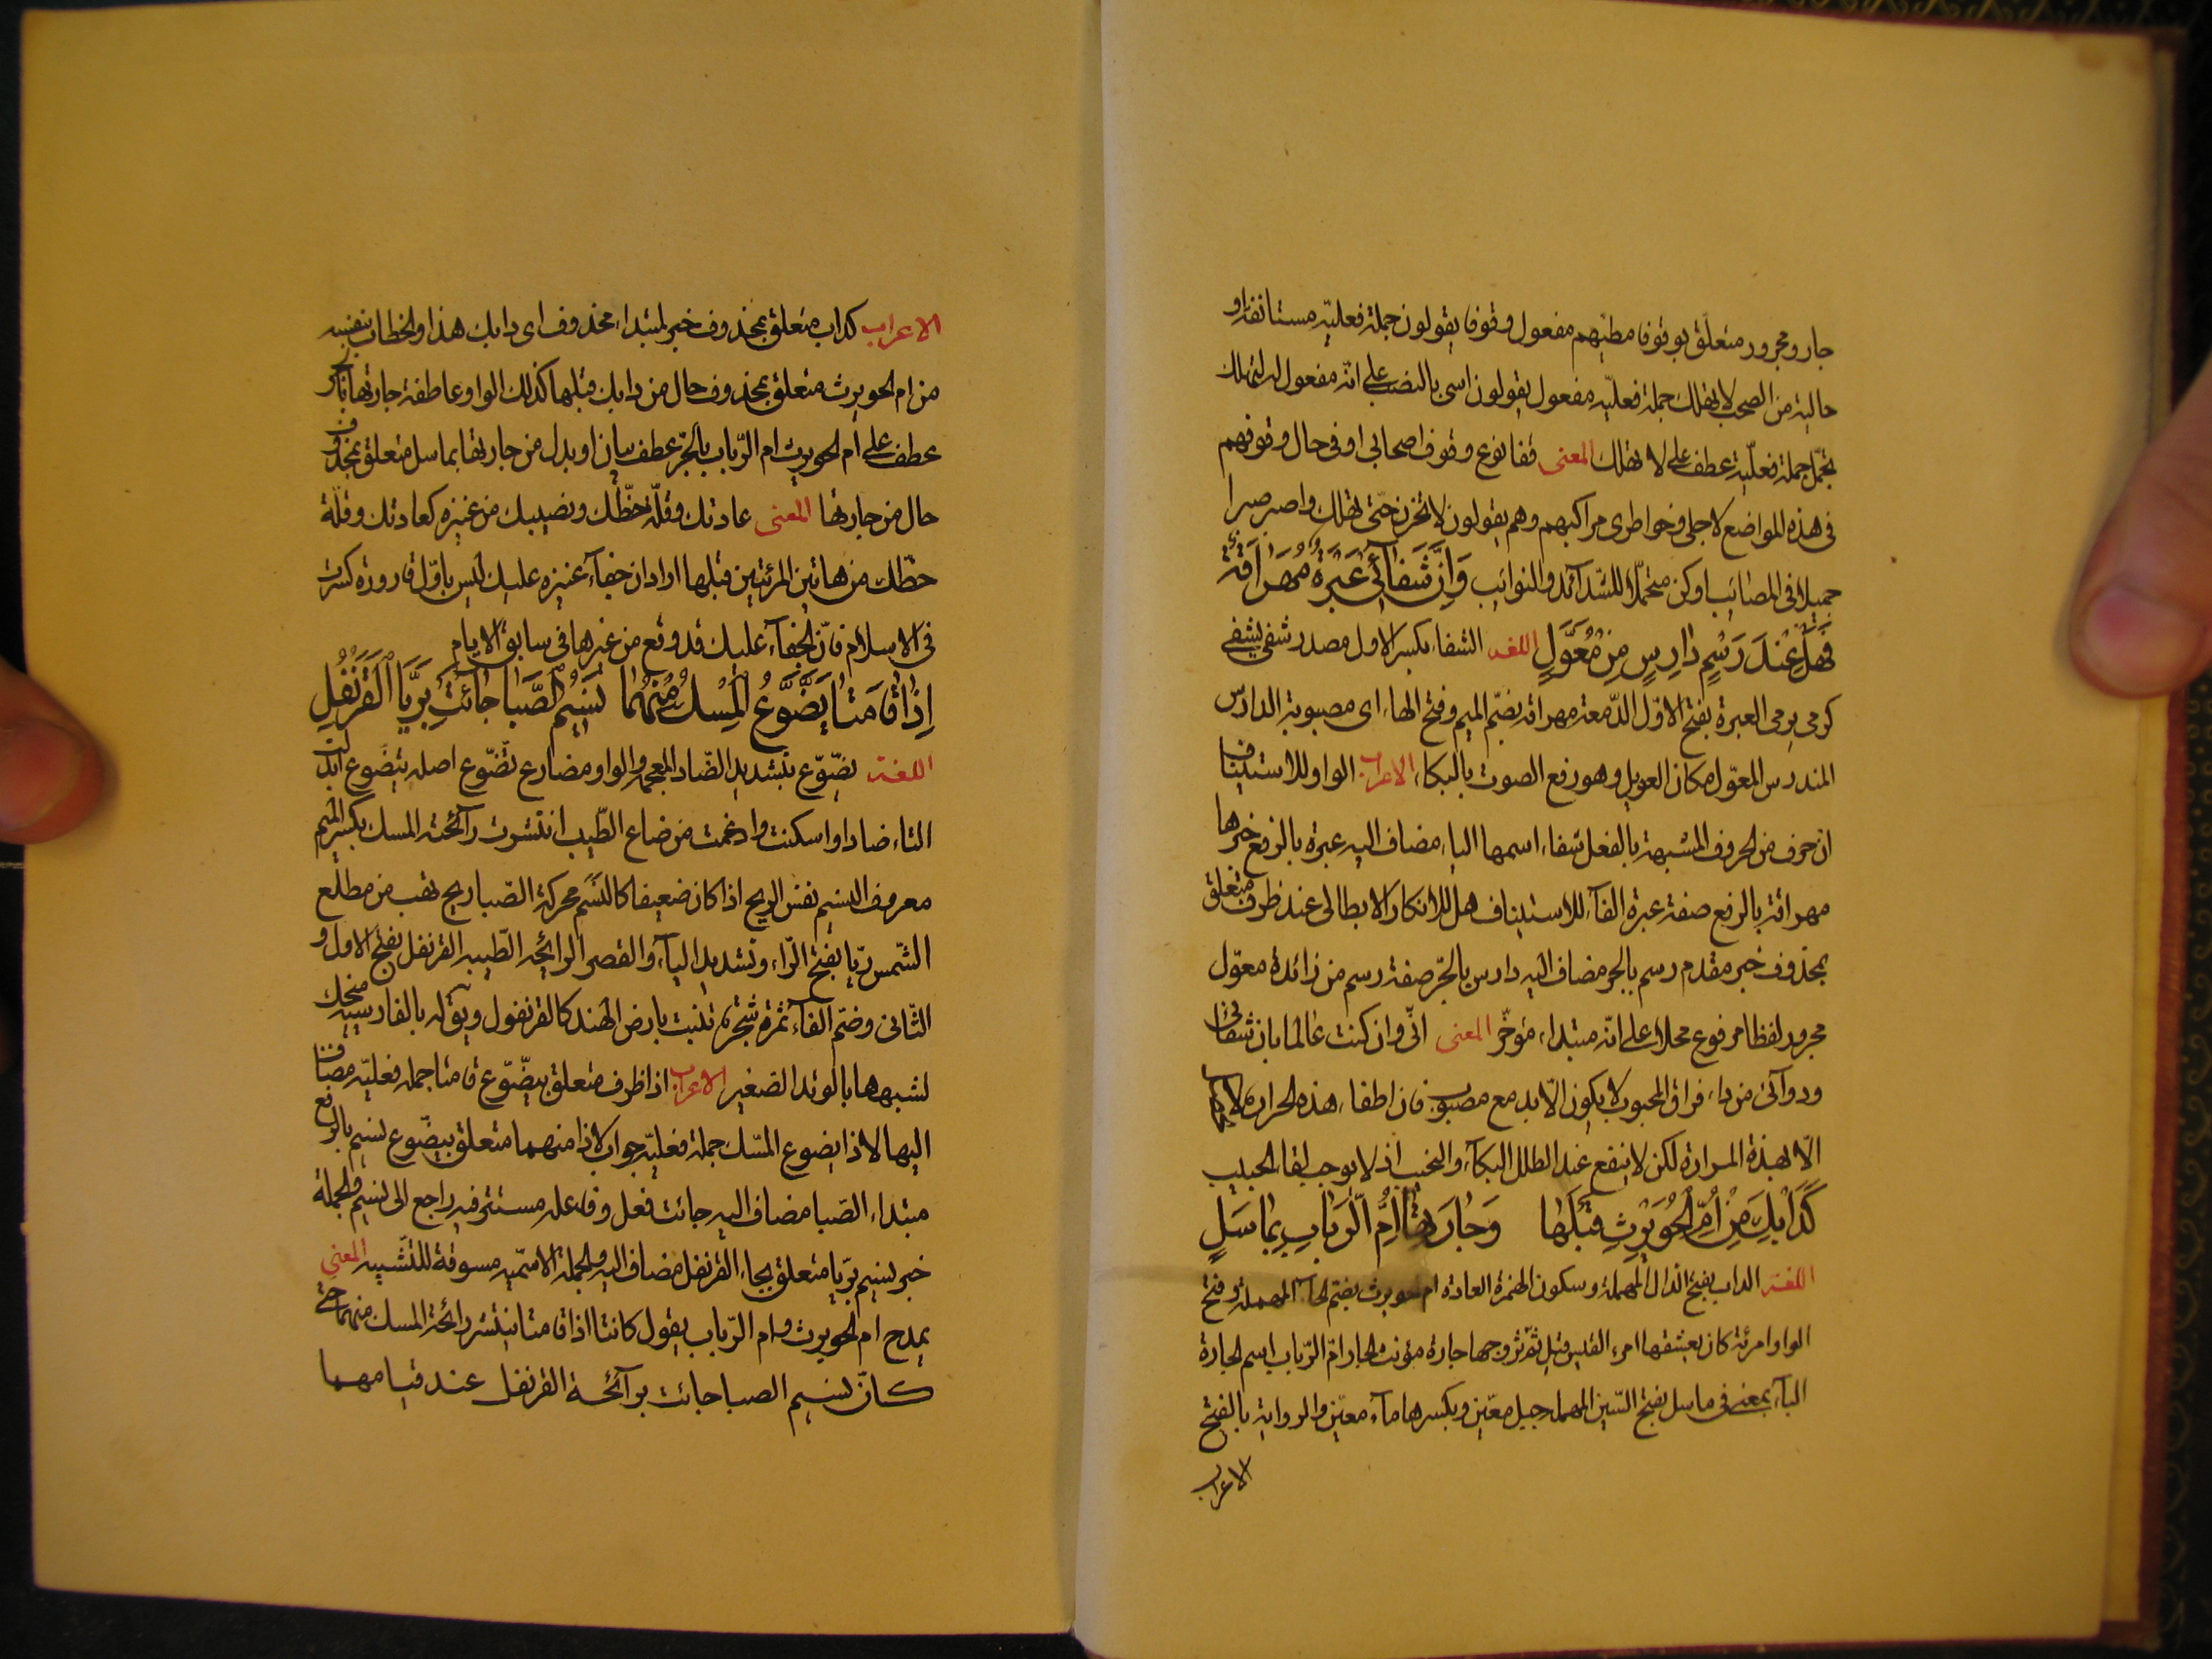 جار ومجرور متعلّق بوقوفا مطيّهم مفعول وقوفا يقولون جملة فعليّة مستانفة او
حالية من الصحب لا تهلك جملة فعليّه مفعول يقولون اسى بالنصب على انّه مفعول له لتهلك
تجمّل جملة فعليّة عطف على لا تهلك المعنى قفا نوع وقوف اصحابى او فى حال وقوفهم
فى هذه المواضع لاجلى وخواطرى مراكبهم وهم يقولون لا تحزن حتّى تهلك واصبر صبرا
جميلا فى المصائب وكن متحمّلا للشّدآئد والنوائب وَاِنَّ شَفٰائى عَبْرَةٌ مُهَرٰاقَةٌ
فَهَلْ عِنْدَ رَسْمٍ دٰارِسٍ مِنْ مُعَوَّلِ اللغه الشفاء بكسر الاول مصدر شفى يشفى
كرمى يرمى العبرة بفتح الاوّل الدّمعة مهراقة بضمّ الميم وفتح الهاء اى مصبوبة الدارس
المندرس المعوّل مكان العويل وهو رفع الصوت بالبكاء الاعراب الواو للاستيناف
ان حرف من الحروف المشبهة بالفعل شفاء اسمها الياء مضاف اليه عبرة بالرفع خبرها
مهراقة بالرفع صفة عبرة الفآء للاستيناف هل للانكار الابطالى عند ظرف متعلق
بمحذوف خبر مقدم رسم بالجر مضاف اليه دارس بالجرّ صفة رسم من زائدة معوّل
مجرور لفظا مرفوع محلا على انّه مبتداء مؤخّر المعنى انّى وان كنت عالما بان شفائى
ودوآئى من داء فراق المحبوب لا يكون الّا بدمع مصبوب فان اطفاء هذه الحرارة لا
الّا بهذه المرارة لكن لا ينفع عند الطلل البكآء والنحيب اذ لا يوجب لقاء الحبيب
كَدَاْبِكَ مِنْ اُمِّ الْحُوَيْرِثِ قَبْلَهٰا وَجٰارَتِهٰا اُمِّ الرَّبٰابِ بِمٰاسَلِ
اللغة الداب بفتح الدال المهملة وسكون الهمزة العادة ام الحويرث بضم الحآء المهملة وفتح
الواو امرئة كان يعشقها امرء القيس قبل تزوجها جارة مؤنث الجار امّ الرّباب اسم الجارة
البآء بمعنى فى ماسل بفتح السّين المهمله جبل معيّن وبكسرها مآء معيّن والرواية بالفتح
الاعراب
الاعراب كداب متعلق بمحذوف خبر لمبتداء محذوف اى دابك هذا والخطاب لنفسه
من ام الحويرث متعلق بمحذوف حال من دابك قبلها كذلك الواو عاطفة جارتها بالجر
عطف على ام الحويرث ام الرّباب بالجّر عطف بيان او بدل من جارتها بماسل متعلق بمحذوف
حال من جارتها المعنى عادتك وقلّة حظّك ونصيبك من عنيزه كعادتك وقلّة
حظّك من هاتين المرئتين قبلها اراد ان جفآء عنيزه عليك ليس باوّل قارورة كسرت
فى الاسلام فانّ الجفآء عليك قد وقع من غيرها فى سابق الايام
اِذٰا قٰامَتٰا يَضَّوَّعُ الْمِسْكُ مِنْهُمٰا نَسيمُ الصَّبٰا جٰائَتْ بِرَيَّا الْقَرَنْفُلِ
اللغة يضّوّع بتشديد الضّاد المعجمه والواو مضارع تضّوّع اصله يتضوع ابدلت
التاء ضادا واسكنت وادغمت من ضاع الطّيب انتشرت رآئحته المسك بكسر الميم
معروف النسيم نفس الريح اذا كان ضعيفا كالنَّسَم محركة الصّبا ريح تهب من مطلع
الشّمس ريّا بفتح الرّاء وتشديد اليآء والقصر الرائحه الطّيبه القرنفل بفتح الاول و
الثّانى وضمّ الفآء ثمرة شجرة تنبت بارض الهند كالقرنفول ويق له بالفارسيه ميخك
لشبهها بالوتد الصغير الاعراب اذا ظرف متعلق بيضّوّع قامتا جمله فعليّه مضاف
اليها لاذا يضوع المسك جملة فعليّه جواب لاذا منهما متعلق بيضّوع نسيم بالرفع
مبتداء الصّبا مضاف اليه جائت فعل وفاعله مستتر فيه راجع الى نسيم والجملة
خبر نسيم بريّا متعلق بجاء القرنفل مضاف اليه والجملة الاسميّه مسوقة للتّشبيه المعنى
يمدح ام الحويرث وام الرّباب يقول كانتا اذا قامتا ينتشر رائحة المسك منهما حتى
كانّ نسيم الصبا جائت برآئحة القرنفل عند قيامهما